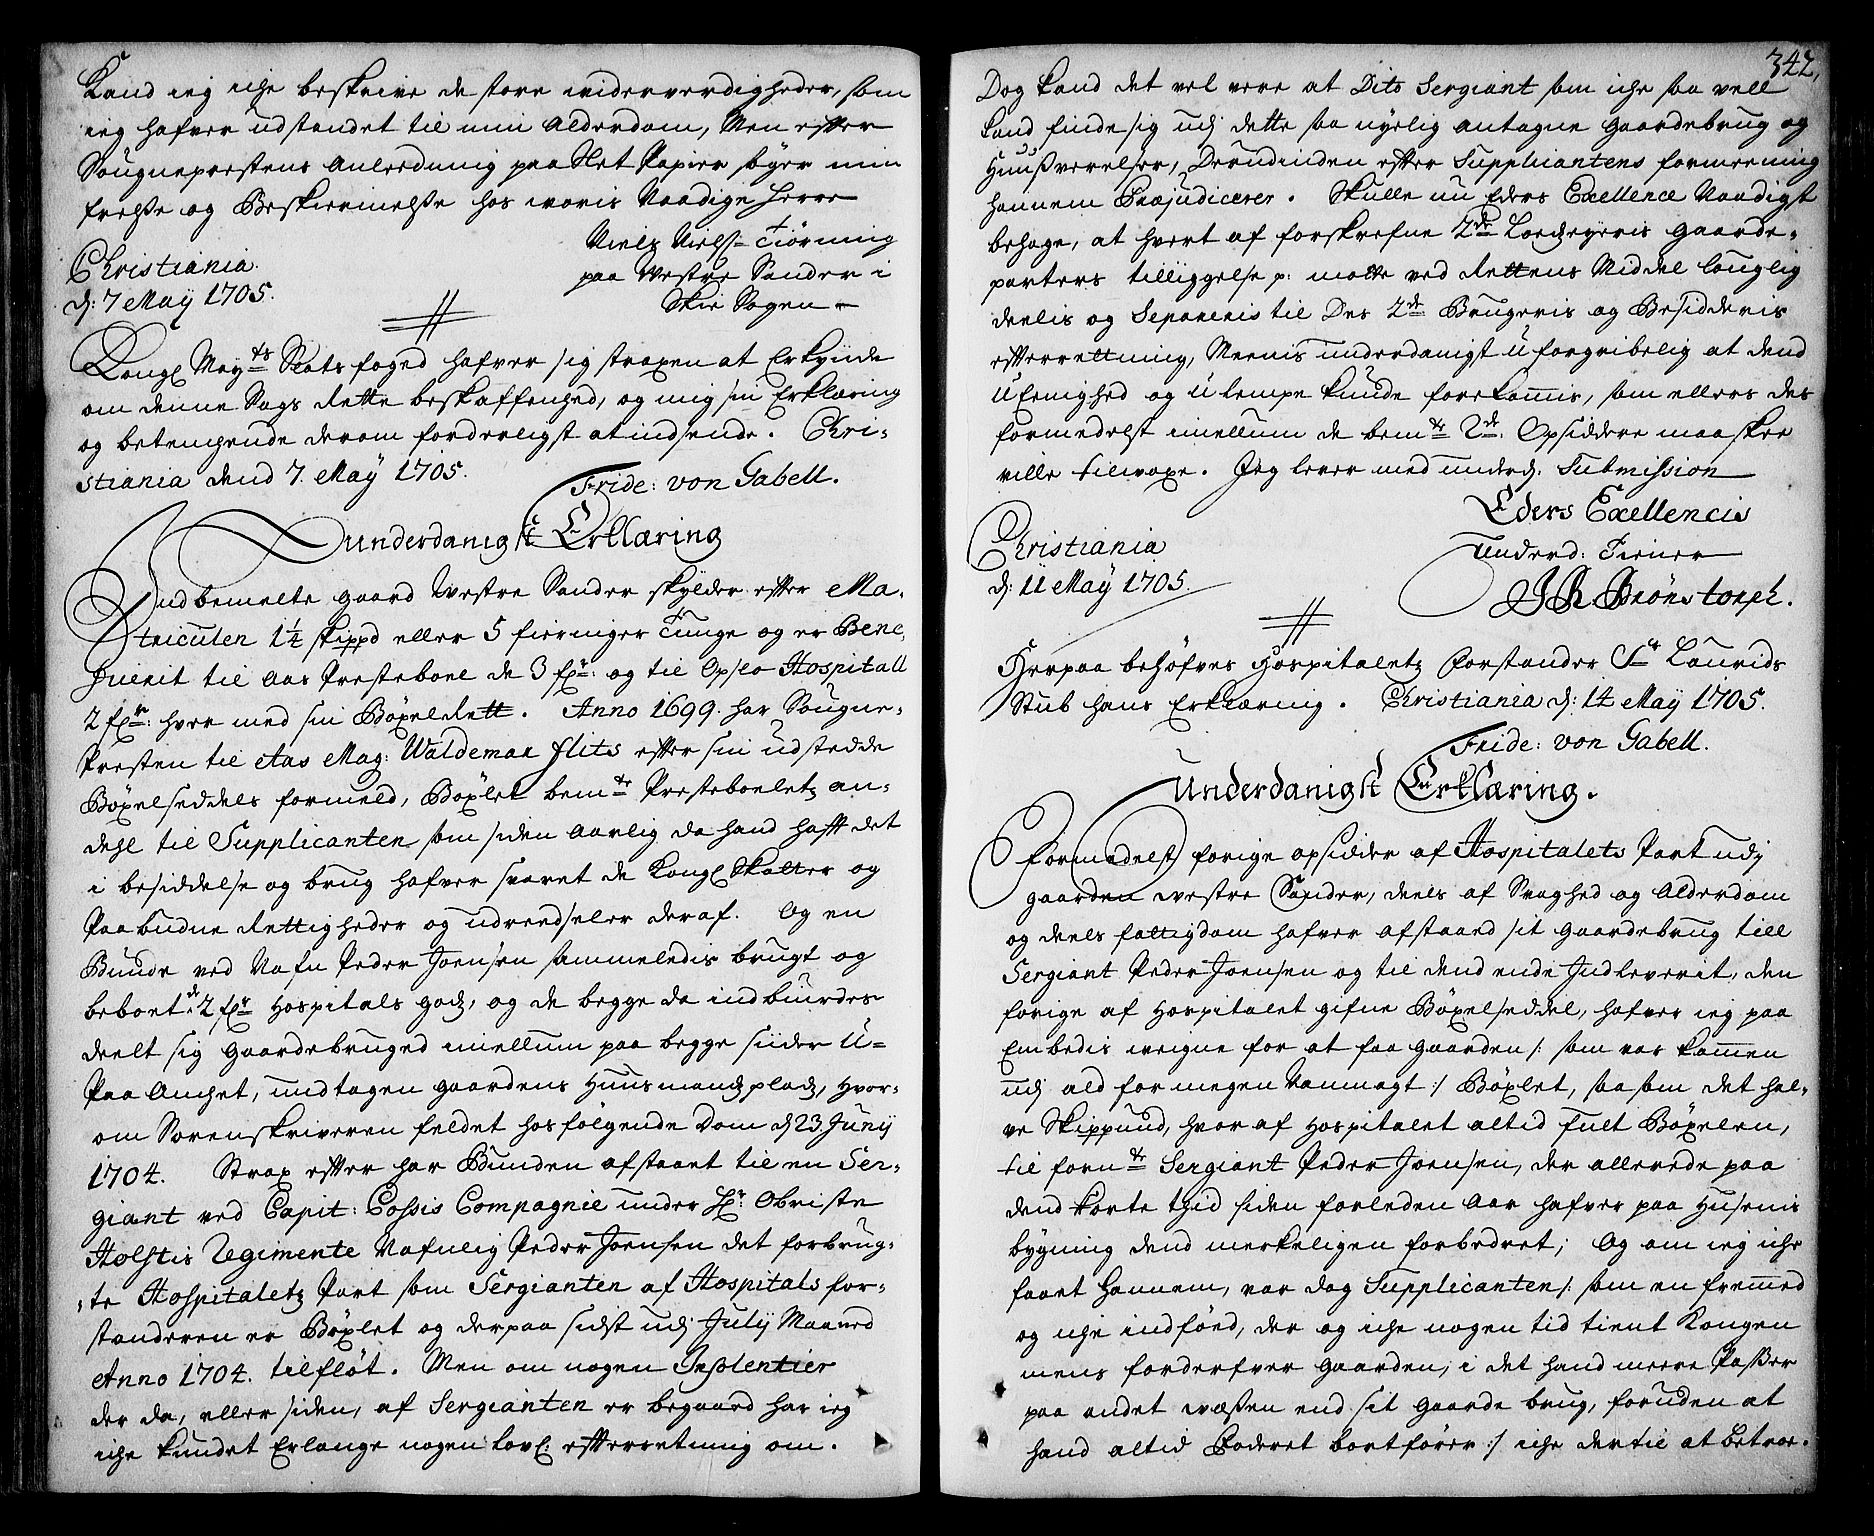 Kand ieg iche beskrive de store widerverdigheder, som
ieg hafver udstandet til min Alderdom, Men efter
Sougneprestens Anledning paa Slet Papier søger min
frelse og Beskiermelse hos woris Naadige Herre
Niels Niels: Tiørning
Christiania
paa Westre Sander i
d: 7 May 1705.
Skie Sogen
Kongl May.ts Slotsfoged hafver sig straxen at Erkynde
om denne Sags rette beskaffenhed, og mig sin Erklæring
og betenchende derom forderligst at indsende. Chri-
stiania dend 7. May 1705.
Fride: von Gabell.
Underdanigst Erklæring
Indbemelte gaard Westre Sander skylder efter Ma-
triculen 1¼ skippd eller 5 fieringer Tunge og er Bene-
ficerit til Aas Presteboel de 3 fr: og til Opslo Hospitall
2 fr: hver med sin Bøxelrett. Anno 1699. har Sougne-
Presten til Aas Mag: Waldemar flits efter sin udstedde
Bøxelseddels formeld, Bøxlet bem.te Presteboeletz an-
dehl til Supplicanten som siden Aarlig da hand hafft det
i besiddelse og brug hafver svaret de Kongl Skatter og
Paabudne Rettigheder og udreedseler deraf. Og en
Bunde ved Nafn Peder Joensen sammeledis brugt og
beboet de 2 fr Hospitals God, og de begge da indbiurdes
deelt sig Gaardebruged imellum paa begge siider U-
Paa Anchet, undtagen gaardens Huusmandsplads, Hvor-
om Sorenskriveren feldet hosfølgende Dom d 23 Junij
1704. Strax efter har Bunden afstaaet til en Ser-
giant ved Capit: Cossis Compagnie under Hr: Obriste
Holstis Regimente Nafnlig Peder Joensen det forbrug-
-te Hospitaletz Part som Sergianten af Hospitals for-
standeren er Bøxlet og derpaa sidst udj Julij Maaned
Anno 1704. tilfløt. Men om nogen Insolentier
der da, eller siden, af Sergianten er begaaed har ieg
iche kundet Erlange nogen lovl: efterretning om.
342,
Dog kand det vel vere at Dito Sergiant som iche saa vell
kand finde sig udj dette saa nyelig antagne Gaardebrug og
Huusverelser, Derudinden efter Supplicantens formeening
hannem Præjudicerer. Skulle nu Eders Excellence Naadigst
behage, at hvert af forskrefne 2de Lodeyeris Gaarde-
parters tilliggelse p: motte ved Rettens Middel louglig
deelis og Separeris til Des 2de Brugeris og Besidderis
efterrettning, Meenis underdanigst uforgribelig at dend
uEenighed og ulempe kunde forekommis, som ellers des
formedelst imellum de bem.te 2de: Opsiddere maaskee
ville tilwoxe. Jeg lever med underd: Submission
Eders Excellencis
Christiania
Underd: Tiener
d: 11 May 1705.
J R. Brønstorph.
Herpaa behøfves Hospitaletz Forstander Sr Laurids
Stub hans Erklæring. Christiania d: 14 May 1705.
Fride: von Gabell.
Underdanigst Erklæring.
Formedelst forige opsidder af Hospitalets Part udj
gaarden westre Sander, deels af Svaghed og Alderdom
og deels fattigdom hafver afstaaed sit Gaardebrug till
Sergiant Peder Joensen og til dend ende Indleverit, den
forige af Hospitalet gifne Bøxelseddel, hafver ieg paa
Embedis weigne for at faa Gaarden /: som var kommen
udj ald for megen Vanmagt :/ Bøxlet, saasom det hal-
ve Skippund, hvoraf Hospitalet altid fult Bøxelen,
til forn.te Sergiant Peder Joensen, der allerede paa
dend korte thid siden forleden Aar hafver paa Husenis
bygning dend merkeligen forbedret; Og om ieg iche
faaet Hannem, var dog Supplicanten /: som en fremmed
og iche indføed, der og iche nogen tid tient Kongen
mens forderfver Gaarden, i det hand meere Passer
paa andet wæsen end sit Gaarde brug, foruden at
hand altid Foderet bortfører :/ iche dertil at betroe.